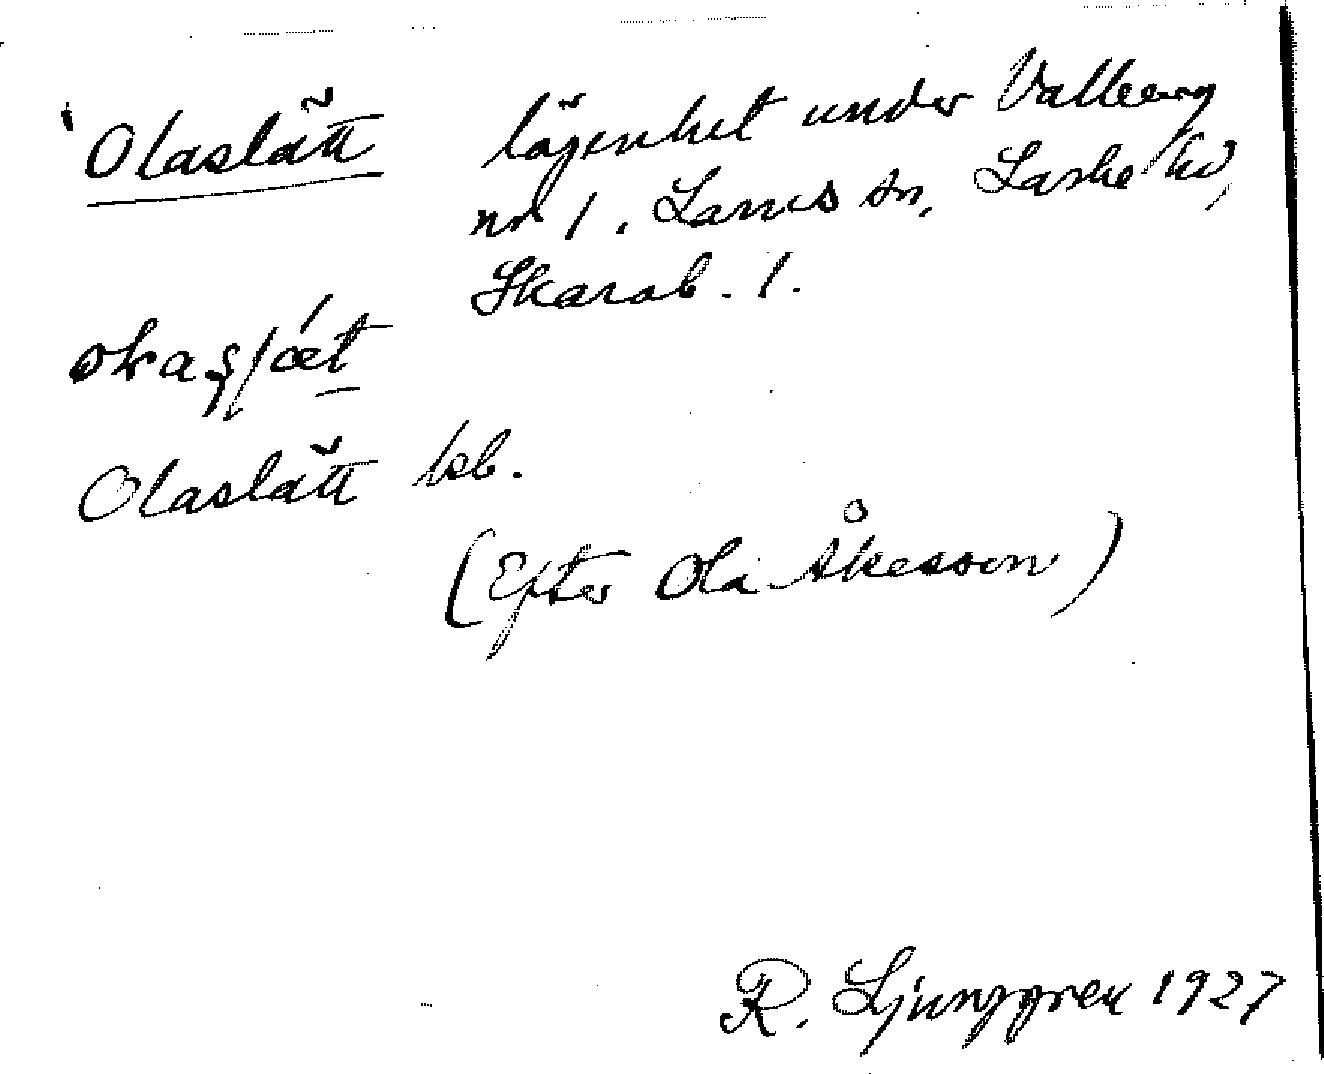 Olaslätt lägenhet under Valleberg
nr 1. Larvs sn, Laske hd,
Skarab. l.
Olaslätt
(Efter Ola Åkesson)
R. Ljunggren 1927